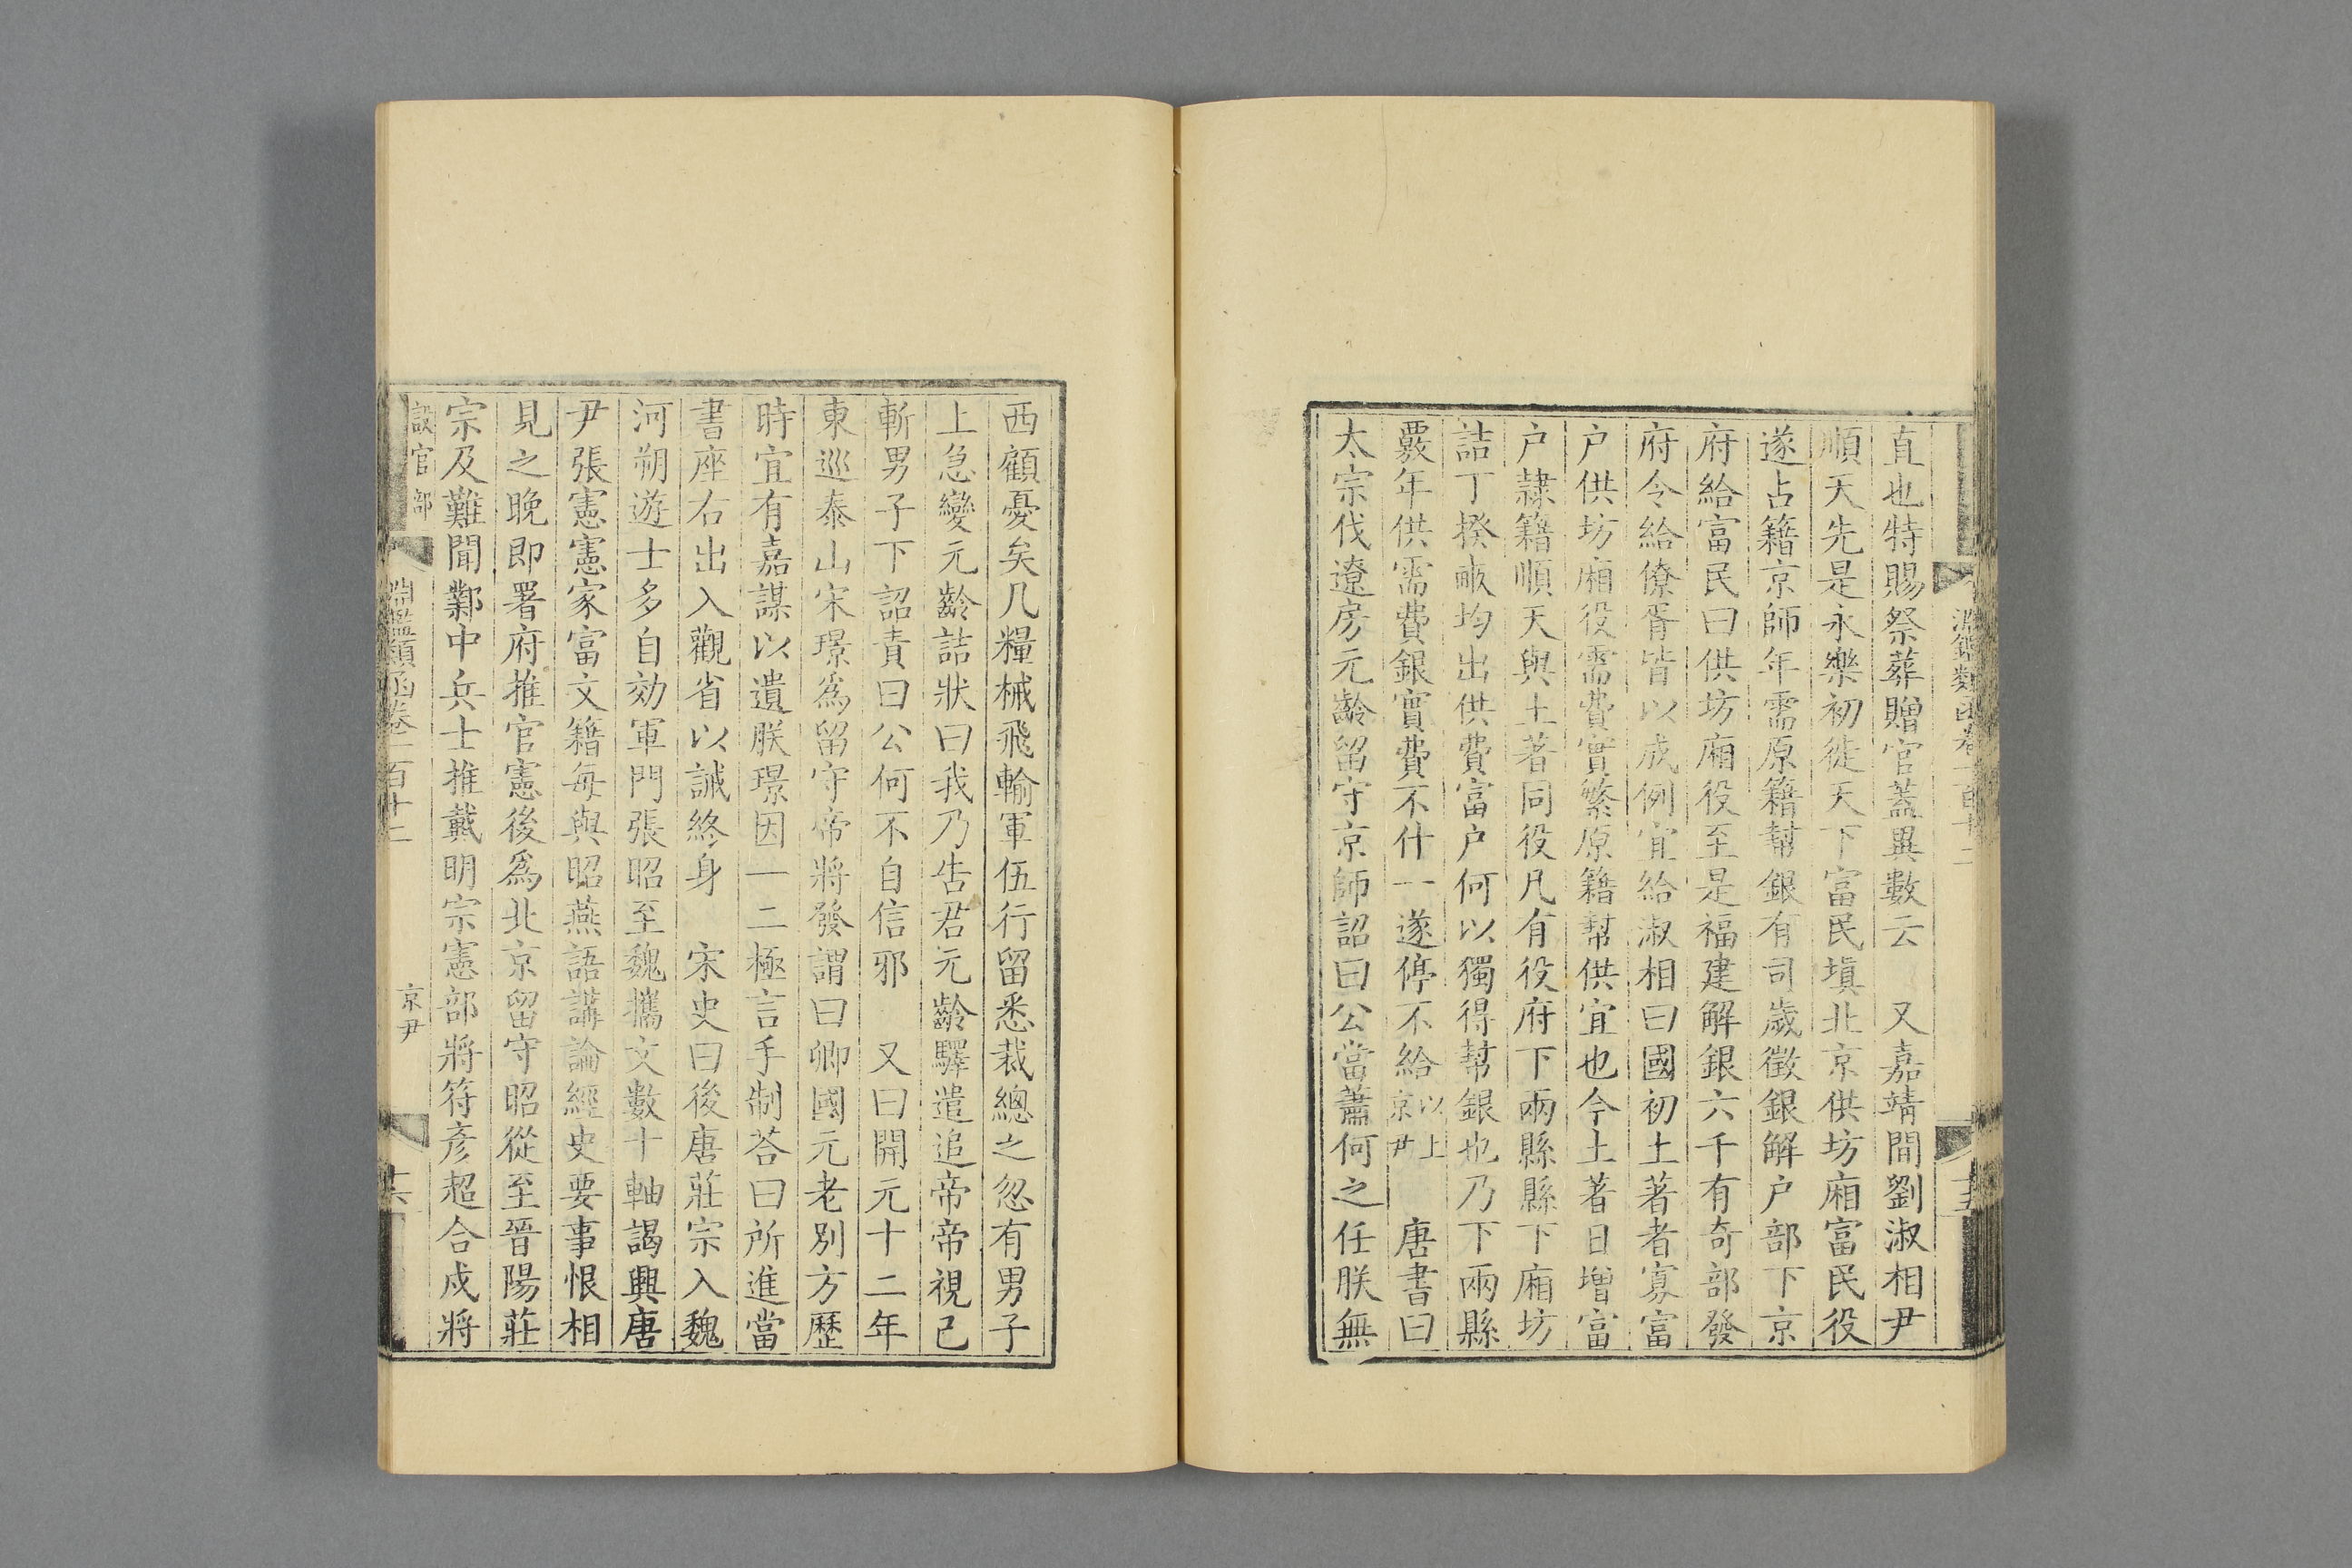 直也特賜祭葬贈官蓋異數云　又嘉靖間劉淑相尹
順天先是永樂初徙天下富民塡北京供坊廂富民役
遂占籍京師年需原籍幫銀有司歲徵銀解户部下京
府給富民曰供坊廂役至是福建解銀六千有奇部發
府令給僚胥皆以成例宜給淑相曰國初土著者寡富
户供坊廂役需費實繁原籍幫供宜也今土著日增富
户隷籍順天與土著同役凡有役府下兩縣縣下廂坊
詰丁揆畝均出供費富户何以獨得幫銀也乃下兩縣
覈年供需費銀實費不什一遂停不給以上京尹　唐書曰
太宗伐遼房元齡留守京師詔曰公當蕭何之任朕無
淵鑑類函卷一百十二
十五
西顧憂矣凡糧械飛輸軍伍行留悉裁總之忽有男子
上急變元齡詰狀曰我乃告君元齡驛遣追帝帝視已
斬男子下詔責曰公何不自信邪　又曰開元十二年
東巡泰山宋璟爲留守帝將發謂曰卿國元老别方歷
時宜有嘉謀以遺朕璟因一二極言手制荅曰所進當
書座右出入觀省以誡終身　宋史曰後唐莊宗入魏
河朔遊士多自効軍門張昭至魏攜文數十軸謁興唐
尹張憲憲家富文籍每與昭燕語講論經史要事恨相
見之晚即署府推官憲後爲北京留守昭從至晉陽莊
宗及難聞鄴中兵士推戴明宗憲部將符彥超合戍將
設官部
京尹
淵鑑類函卷一百十二
十六